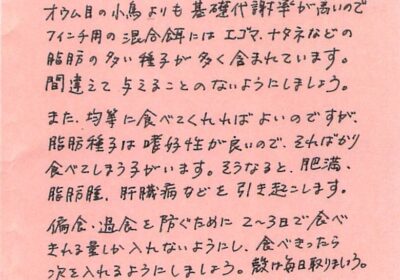 オウム目の小鳥よりも基礎代謝率が高いので
フィンチ用の混合餌にはエゴマ、ナタネなどの
脂肪の多い種子が多く含まれています。
間違えて与えることのないようにしましょう。
また、均等に食べてくれればよいのですが、
脂肪種子は嗜好性が良いので、そればかり
食べてしまう子がいます。そうなると、肥満、
脂肪腫、肝臓病などを引き起こします。
偏食・過食を防ぐために2〜3日で食べ
きれる量しか入れないようにし、食べきったら
次を入れるようにしましょう。殻は毎日取りましょう。